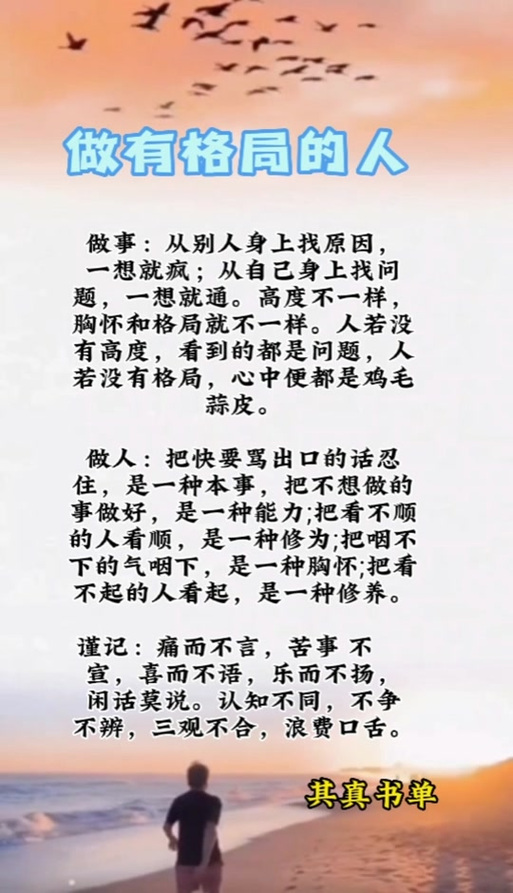 做有格局的人
做事：从别人身上找原因，
一想就疯；从自己身上找问
题，一想就通。高度不一样，
胸怀和格局就不一样。人若没
有高度，看到的都是问题，人
若没有格局，心中便都是鸡毛
蒜皮。
做人：把快要骂出口的话忍
住，是一种本事，把不想做的
事做好，是一种能力;把看不顺
的人看顺，是一种修为;把咽不
下的气咽下，是一种胸怀;把看
不起的人看起，是一种修养。
谨记：痛而不言，苦事 不
宣，喜而不语，乐而不扬，
闲话莫说。认知不同，不争
不辨，三观不合，浪费口舌。
其真书单